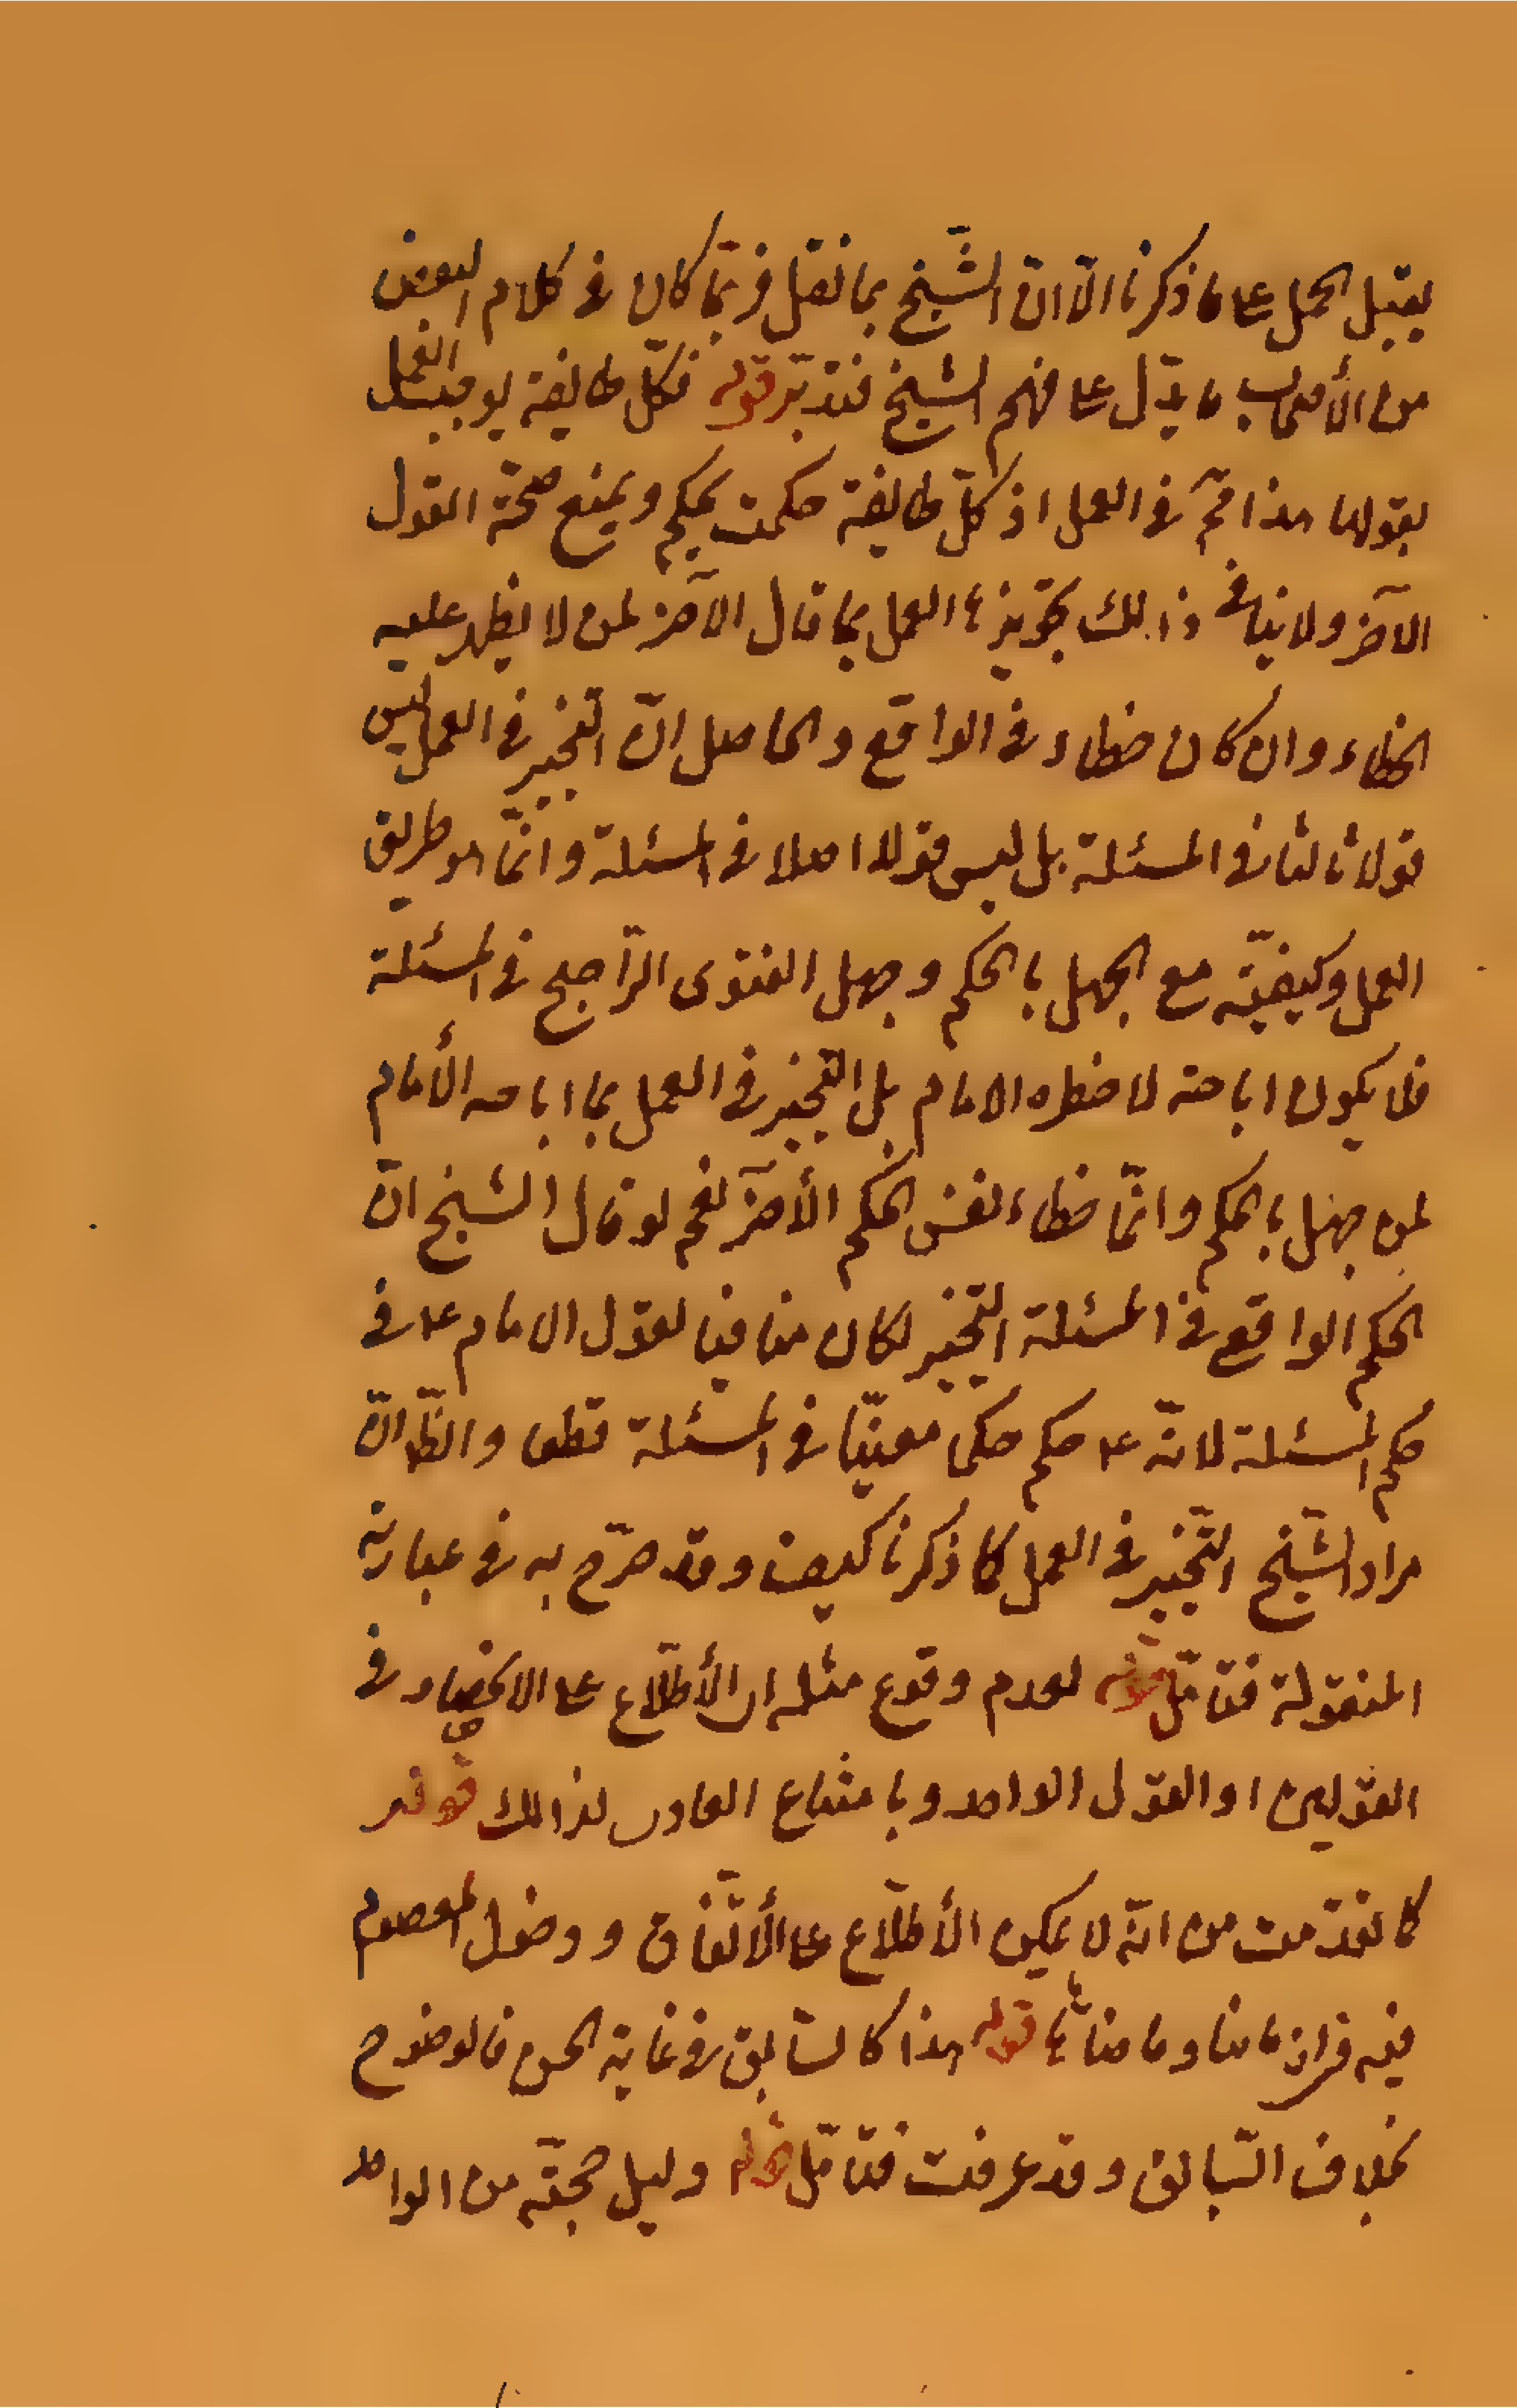 يقبل الحمل على ما ذكرنا الّا انّ الشّيخ بما نقل فربّما كان في كلام البعض
من الأصحاب ما يدّل على فهم الشيخ فتدبّر قوله فكلّ طايفة يوجب العمل
بقولها هذا في العمل اذ كلّ طايفة حكمت بحكم ويمنع صحّة القول
الآخر ولا ينافى ذالك تجويزها العمل بما قال الآخر لمن لا يظهر عليه
الخطاء وان كان خطاء في الواقع والحاصل انّ التخير في العمل ليس
قولا ثالثا في المسئلة بل ليس قولا اصلا في المسئلة وانّما هو طريق
العمل وكيفيّته مع الجهل بالحكم وجهل الفتوى الرّاجح في المسئلة
فلا يكون اباحة لا خطره الامام بل التخير في العمل بما اباحه الأمام
لمن جهل بالحكم وانّما خطاء نفس الحكم الأخر نعم لو قال الشيخ انّ
الحكم الواقع في المسئلة التخير لكان منافيا لقول الامام ع في
حكم المسئلة لانّه ع حكم حكما معيّنا في المسئلة قطعا والظّ انّ
مراد الشّيخ التّخير في العمل كما ذكرنا كيف وقد صرّح به في عبارته
المنقولة فتأمّل قوله لعدم وقوع مثله اى الأطّلاع على الانحصار في
القولين او القول الواحد وبامتناع العادى لذالك قوله
كما تقدّمت من انّه لا يمكن الأطّلاع على الأتّفاق ودخول المعصوم
فيه في ازماننا وما ضاهاها قوله هذا كالسّابق في غاية الحسن فالوضوح
بخلاف السّابق وقد عرفت فتأمّل قوله دليل حجيّة من الواحد